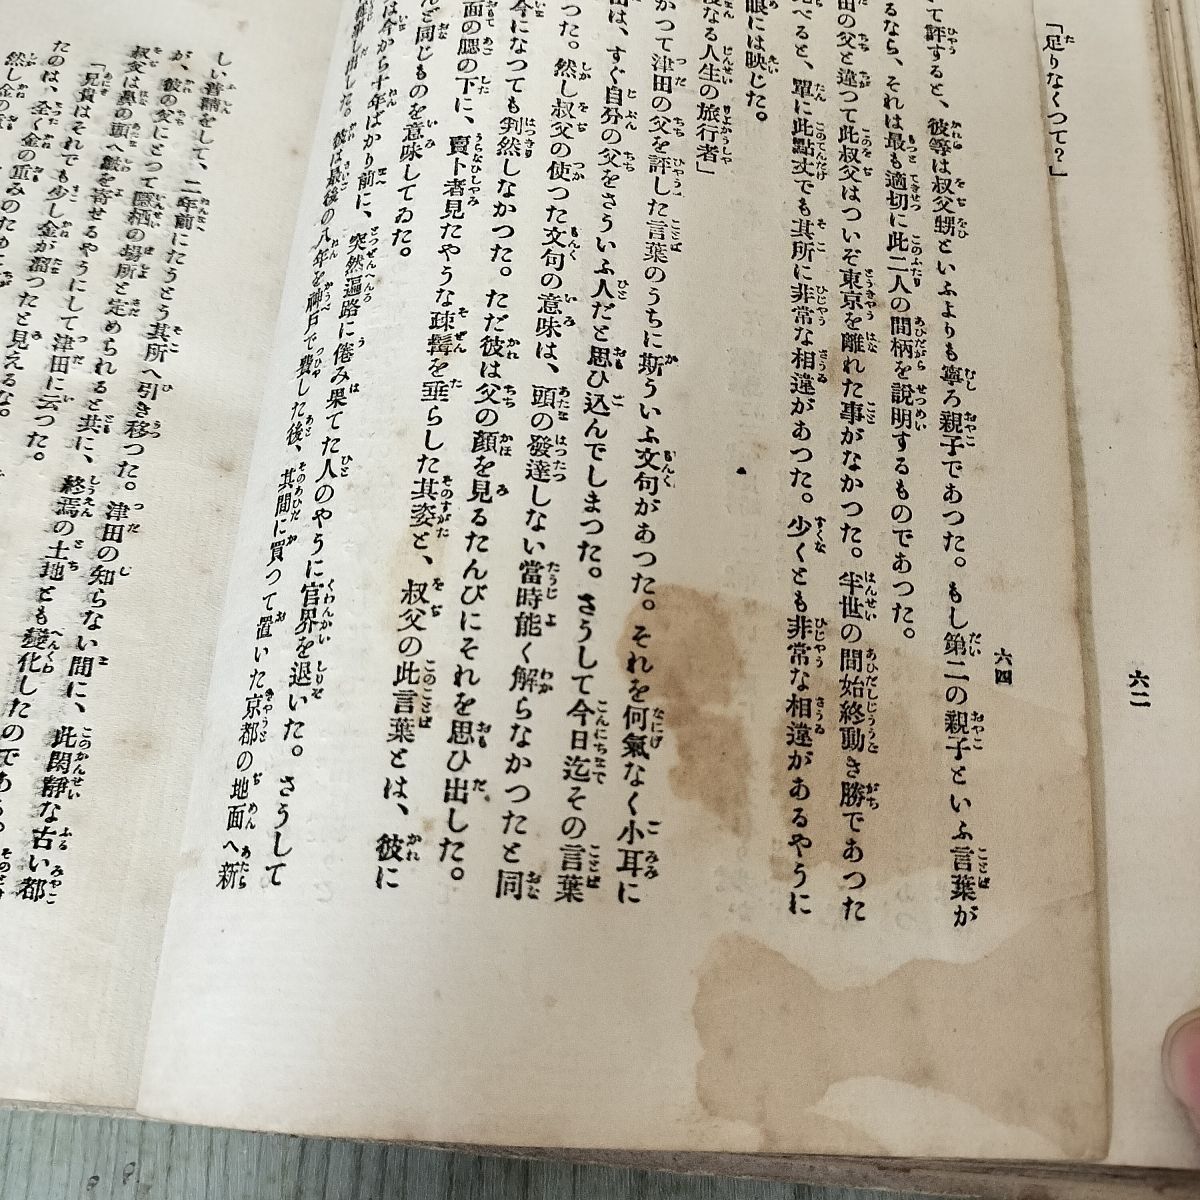 六二
「足りなくつて？」
六四
て評すると、彼等は叔父甥といふよりも寧ろ親子であつた。もし第二の親子といふ言葉が
るなら、それは最も適切に此二人の間柄を説明するものであつた。
田の父と違つて此叔父はついぞ東京を離れた事がなかつた。半世の間始終動き勝であつた
べると、單に此點丈でも其所に非常な相違があつた。少くとも非常な相違があるやうに
眼には映じた。
なる人生の旅行者」
かつて津田の父を評した言葉のうちに斯ういふ文句があつた。それを何氣なく小耳に
田は、すぐ自分の父をさういふ人だと思ひ込んでしまつた。さうして今日迄その言葉
つた。然し叔父の使つた文句の意味は、頭の發達しない當時能く解らなかつたと同
今になつても判然しなかつた。ただ彼は父の顏を見るたんびにそれを思ひ出した。
面の腮の下に、賣卜者見たやうな疎髯を垂らした其姿と、叔父の此言葉とは、彼に
んど同じものを意味してゐた。
は今から十年ばかり前に、突然遍路に倦み果てた人のやうに官界を退いた。さうして
出した。彼は最後の八年を神戸で費した後、其間に買つて置いた京都の地面へ新
しい普請をして、二年前にたうとう其所へ引き移つた。津田の知らない間に、此閑靜な古い都
が、彼の父にとつて隱栖の場所と定められると共に、終焉の土地とも變化したのである。その
叔父は鼻の頭へ皺を寄せるやうにして津田に云つた。
「兄貴はそれでも少し金が溜つたと見えるな。
たのは、全く金の重みのために
然し金の